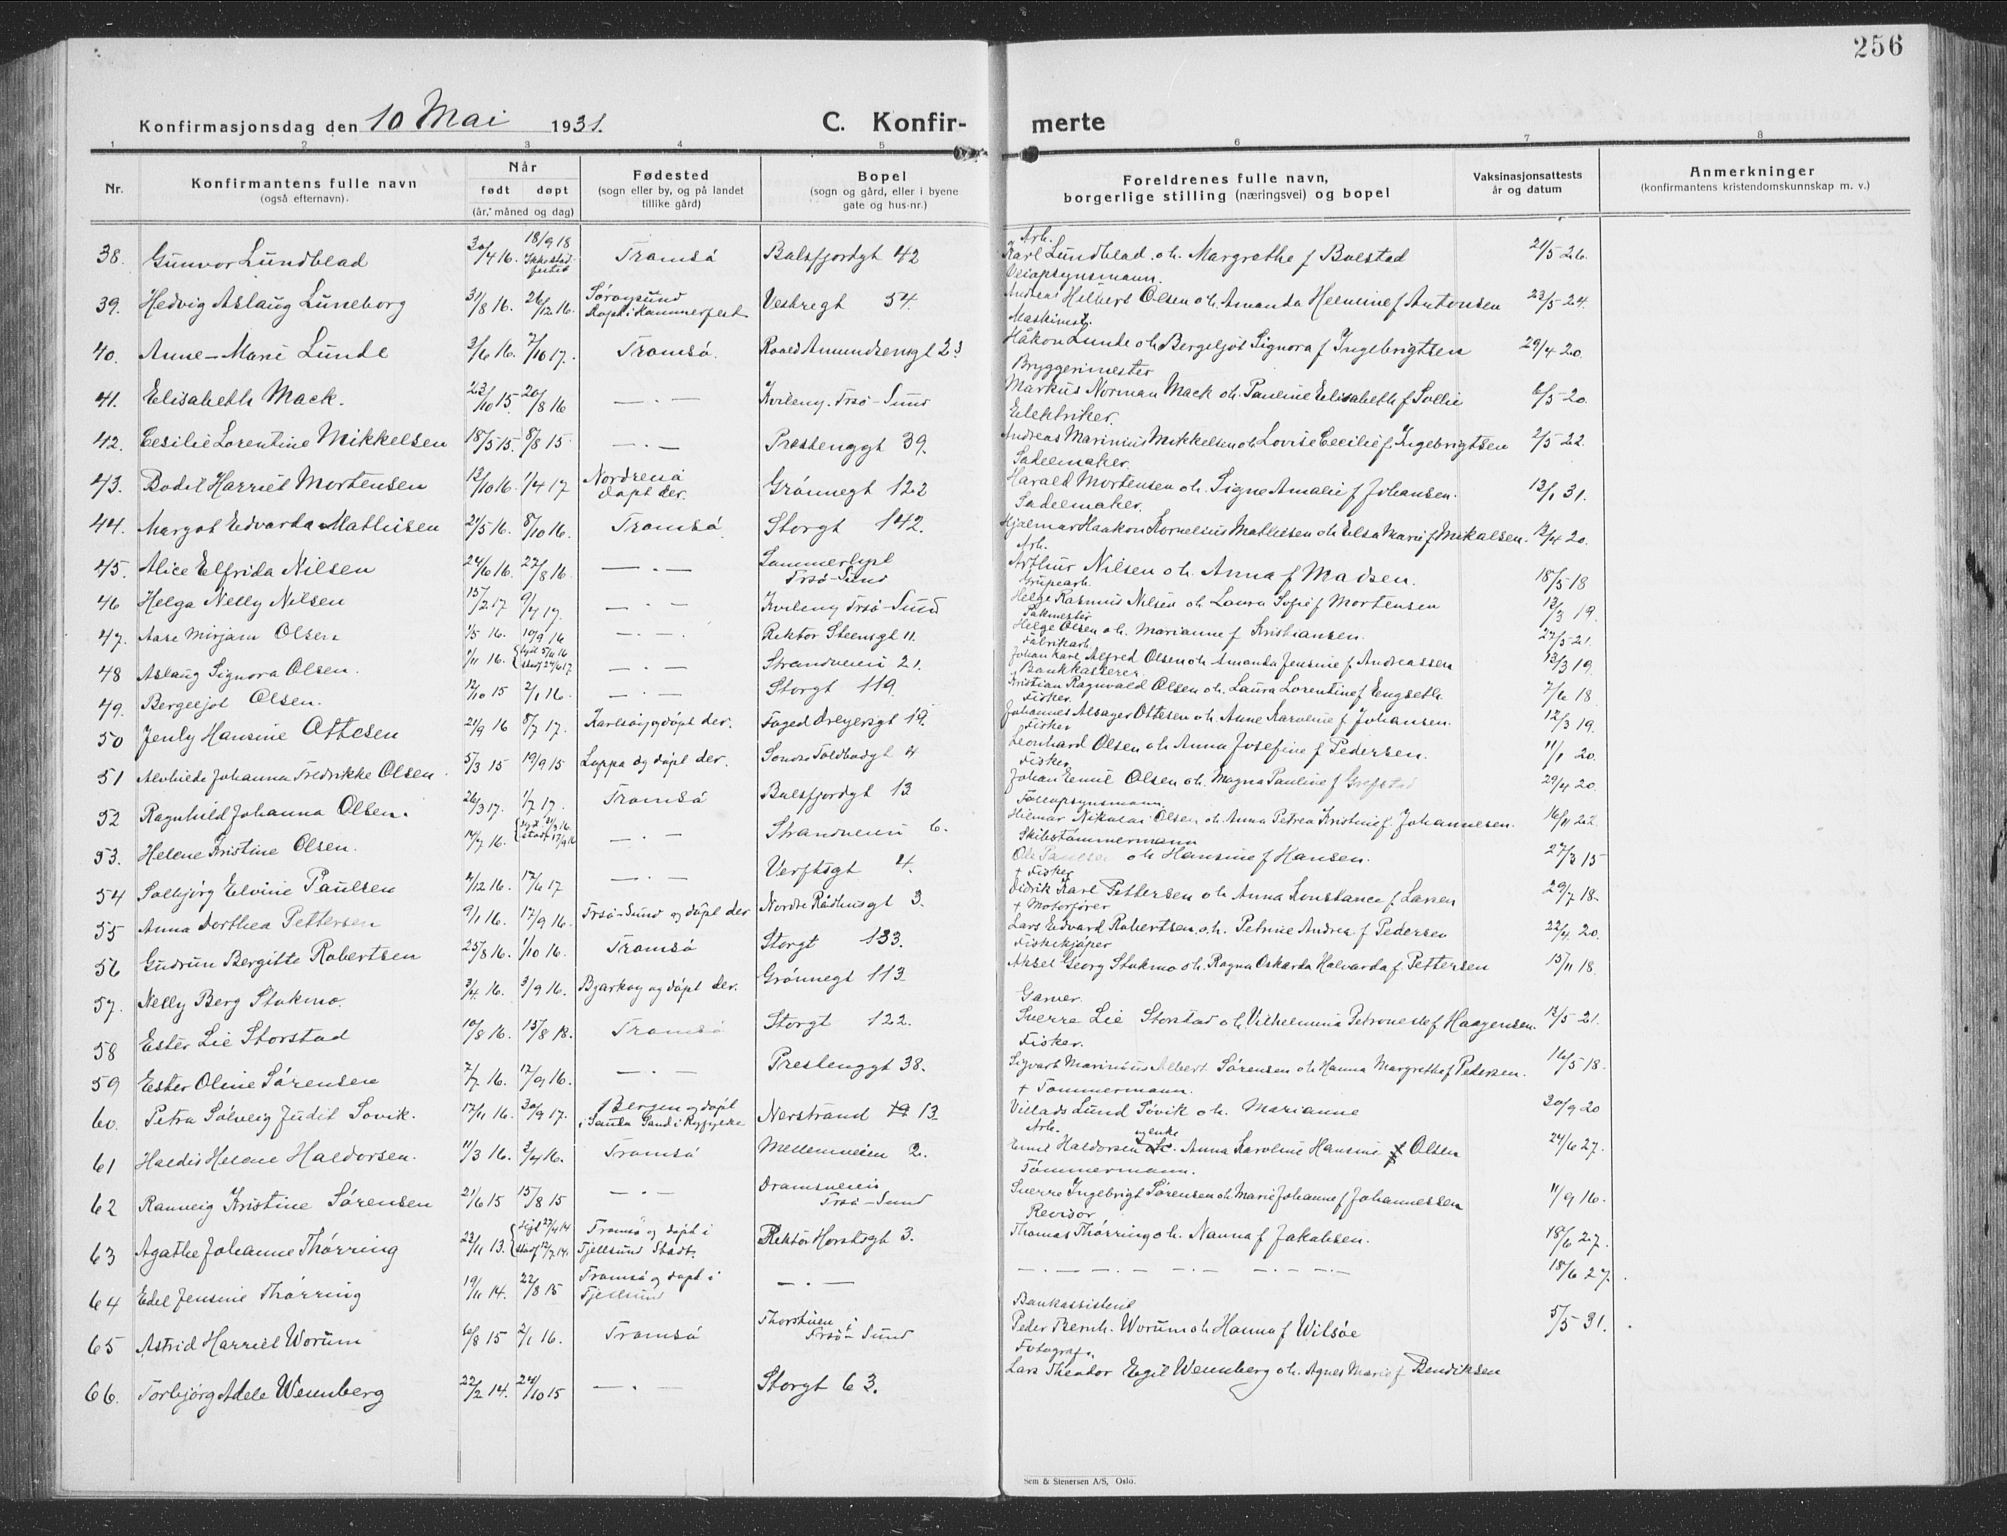 256
Konfirmasjonsdag den 10 Mai 1931. C. Konfir- merte
1 2 3 4 5 6 7 8
Nr. Konfirmantens fulle navn (også efternavn). Når født døpt (år, måned og dag) Fødested (sogn eller by, og på landet tillike gård) Bopel (sogn og gård, eller i byene gate og hus-nr.) Foreldrenes fulle navn, borgerlige stilling (næringsvei) og bopel Vaksinasjonsattests år og datum Anmerkninger (konfirmantens kristendomskunnskap m. v.)
38. Gunvor Lundblad 30/4 16. 18/9 18 Tromsø Balsfjordgt 42 Arb. Karl Lundblad o.h. Margrethe f Bolstad 21/5 26.
39. Hedvig Aslaug Luneborg 31/8 16. 26/12 16. Sørøysund døpt i Hammerfest Vestregt 54. Veiopsynsmann. Andreas Hilbert Olsen o.h. Amanda Helmine f Antonsen 23/5 24.
40. Anne-Marie Lunde 3/6 16. 7/10 17. Tromsø. Roald Amundsensgt 23 Maskinist. Håkon Lunde o.h. Bergeljot Signora f Ingebrigtsen 29/4 20.
41. Elisabeth Mack. 23/10 15 20/8 16 — . — Kvileny. Trsø-Sund Bryggerimester Markus Norman Mack o.h. Pauline Elisabeth f Sollie 6/5 20.
42. Cesilie Lorentine Mikkelsen 18/5 15. 8/8 15. — . — Prestenggt 39. Elektriker. Andreas Marinius Mikkelsen o.h. Lovise Cecilie f. Ingebrigtsen 2/5 22.
43. Bodil Harriet Mortensen 13/10 16. 1/4 17 Nordreisa døpt der. Grønnegt 122 Sadelmaker. Harald Mortensen o.h. Signe Amalie f Johansen. 13/1 31.
44. Margot Edvarda Mathisen 21/5 16. 8/10 16. Tromsø Storgt 142. Sadelmaker. Hjalmar Haakon Kornelius Mathisen o.h. Elsa Marie f. Mikalsen. 12/4 20.
45. Alice Elfrida Nilsen 24/6 16. 27/8 16 — . — Trsø-Sund Arb. Arthur Nilsen o.h. Anna f Madsen. 18/5 18
46 Helga Nelly Nilsen 15/2 17 9/4 17. — . — Kvileny Trsø-Sund Grubearb. Helge Rasmus Nilsen o.h. Laura Sofie f Mortensen 12/3 19.
47. Aase Mirjam Olsen 1/5 16. 10/9 16 — . — Rektor Steensgt 11. Pakmester Helge Olsen o.h. Marianne f Kristiansen. 27/5 21.
48 Aslaug Signora Olsen. 1/11 16. — . — Strandveien 21. Fabrikarb. Johan Karl Alfred Olsen o.h. Amanda Jensine f Andreassen 13/3 19.
49. Bergeljot Olsen. 12/10 15 2/1 16. — . — Storgt 119 Bankkasserer Kristian Ragnvald Olsen o.h. Laura Lorentine f Engseth 7/6 18.
50 Jenly Hansine Ottesen 21/9 16 8/7 17. Karlsøy og døpt der. Foged Dreyersgt 19. Fisker. Johannes Alsager Ottesen o.h. Anne Karoline f Johansen. 12/3 19.
51 Alvhilde Johanna Fredrikke Olsen. 5/3 15 19/9 15 Loppa og døpt der. Søndre Toldbodgt 4 Fisker Leonhard Olsen o.h. Anna Josefine f Pedersen. 11/1 20.
52 Ragnhild Johanna Olsen. 26/3 17. 1/7 17. Tromsø Balsfjordgt 13 Fisker Johan Emil Olsen o.h. Magna Pauline f 29/4 20.
53. Helene Kristine Olsen. 14/7 16. — . — Strandveien 6. Tollopsynsmann Hilmar Nikolai Olsen o.h. Anna Petrea Kristine f. Johannesen. 16/11 22.
54 Solbjørg Elvine Paulsen 4/12 16. 17/6 17 — . — Verftsgt 4. Skibstømmermann Ole Paulsen o.h. Hansine f Hansen. 27/3 15
55 Anna Dorthea Pettersen 9/1 16. 17/9 16. Trsø-Sund og døpt der Nordre Rådhusgt 3. + Fisker Didrik Karl Pettersen o.h. Anna Konstance f Larsen 29/7 18.
56 Gudrun Bergitte Robertsen 25/8 16. 1/10 16. Tromsø Storgt 133. + Motorfører Lars Edvard Robertsen o.h. Petrine Andrea f Pedersen 22/4 20.
57. Nelly Berg Stokmo. 3/4 16. 3/9 16. Bjarkøy og døpt der. Grønnegt 113 Fiskekjøper Aksel Georg Stokmo o.h. Ragna Oskarda Halvarda f. Pettersen 15/11 18.
58 Ester Lie Storstad 10/8 16. 15/8 18. Tromsø Storgt 122. Garver. Sverre Lie Storstad o.h. Vilhelmina Petronelle f Haagensen. 12/5 21.
59 Ester Oline Sørensen 7/7 16. 17/9 16. — . — Prestenggt 38. Fisker. Sigvart Marinius Albert Sørensen o.h. Hanna Margrethe f Pedersen. 16/5 18.
60. Petra Sølveig Judit Sovik. 17/11 16. 30/9 17. Bergen og døpt i Sauda Sand i Ryfylke Nerstrand 13. + Tømmermann. Villads Lund Søvik o.h. Marianne 20/9 20
61 Haldis Helene Haldorsen. 11/3 16. 2/4 16. Tromsø Mellemveien 2. Arb. Emil Haldorsen Anna Karoline Hansine f Olsen 24/6 27.
62 Ranveig Kristine Sørensen 21/6 15 15/8 15 — . — Dramsveien Trsø-Sund Tømmermann. Sverre Ingebrigt Sørensen o.h. Marie Johanne f Johannessen 11/9 16.
63 Agathe Johanne Thørring 23/11 13. Tromsø og døpt i Tjellsund Stadf. Rektor Horstsgt 3. Revisor Thomas Thørring o.h. Nanna f Jakobsen. 18/6 27.
64 Edel Jensine Thørring 19/11 14. 22/8 15 Tromsø og døpt i Tjellsund — . — — . — . — 18/6 27.
65 Astrid Harriet Worum 6/8 15 2/1 16. Tromsø Trsø-Sund Bankassistent Peder Bernh. Worum o.h. Hanna f Wilsøe 5/5 31.
66. Torbjørg Adele Wennberg 22/2 14. 24/10 15 — . — Storgt 63. Fotograf. Lars Theodor Egil Wennberg o.h. Agnes Marie f Bendiksen
Sem & Stenersen A/S, Oslo.